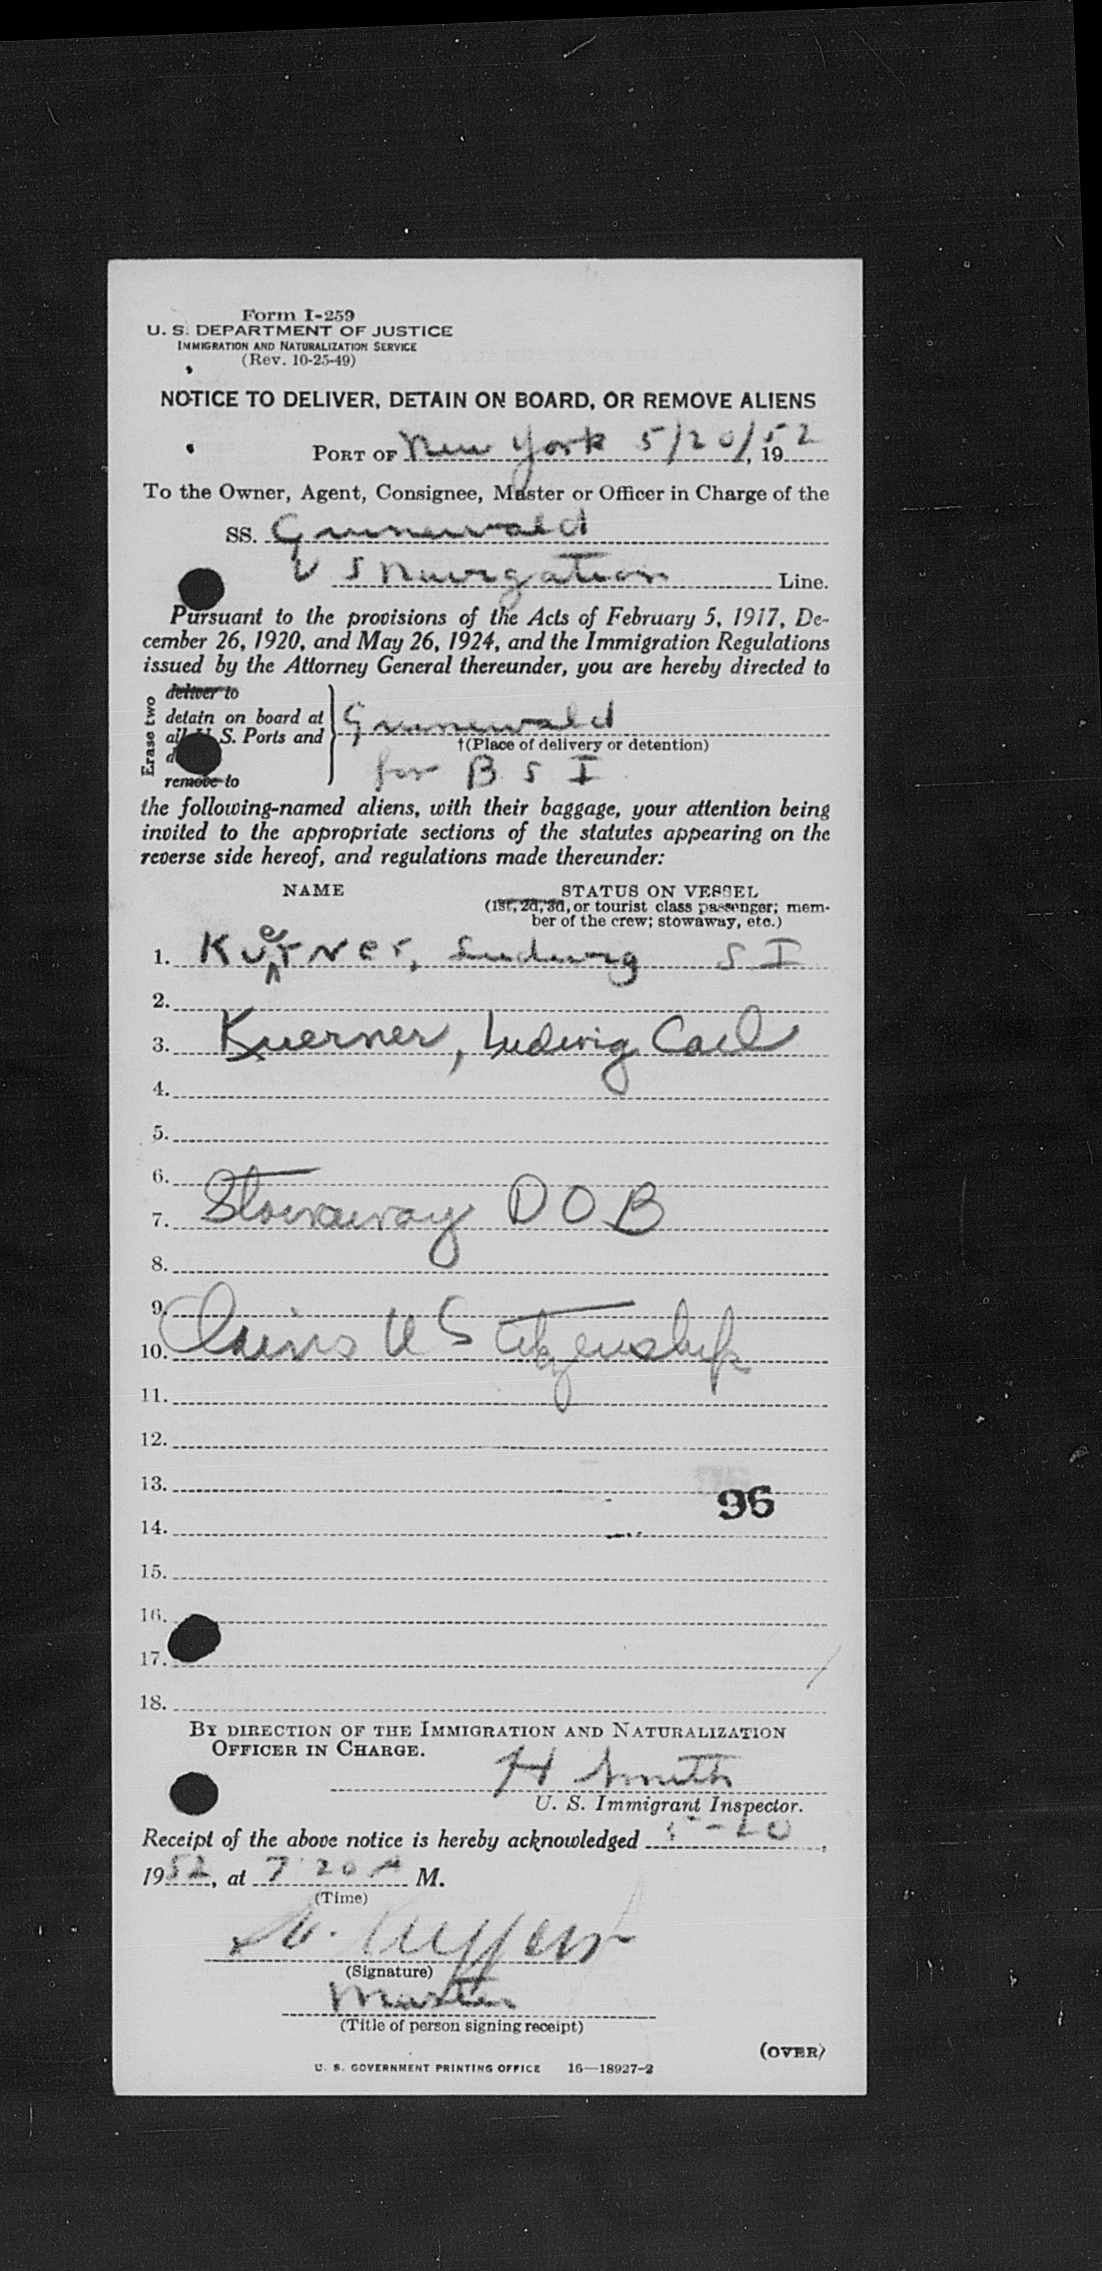 Form I-259
U. S. DEPARTMENT OF JUSTICE
IMMIGRATION AND NATURALIZATION SERVICE
(Rev. 10-25-49)
NOTICE TO DELIVER, DETAIN ON BOARD, OR REMOVE ALIENS
PORT OF New York 5/20/, 1952
To the Owner, Agent, Consignee, Master or Officer in Charge of the
SS. Grunewald
U S Navigation Line.
Pursuant to the provisions of the Acts of February 5, 1917, De-
cember 26, 1920, and May 26, 1924, and the Immigration Regulations
issued by the Attorney General thereunder, you are hereby directed to
Erase two
deliver to
detain on board at
all U. S. Ports and
remove to
Grunewald
†(Place of delivery or detention)
for B S I
the following-named aliens, with their baggage, your attention being
invited to the appropriate sections of the statutes appearing on the
reverse side hereof, and regulations made thereunder:
NAME STATUS ON VESSEL
(1st, 2d, 3d, or tourist class passenger; mem-
ber of the crew; stowaway, etc.)
1. Kuerner, Ludwig S I
2.
3. Kuerner, Ludwig Carl
4.
5.
6.
7. Stowaway D O B
8.
9.
10. Claims U S Citizenship
11.
12.
13.
96
14.
15.
16.
17.
18.
BY DIRECTION OF THE IMMIGRATION AND NATURALIZATION
OFFICER IN CHARGE.
H Smith
U. S. Immigrant Inspector.
Receipt of the above notice is hereby acknowledged 5-20,
1952, at 7 20 A M.
(Time)
(Signature)
Master
(Title of person signing receipt)
(OVER)
U. S. GOVERNMENT PRINTING OFFICE 16—18927-2